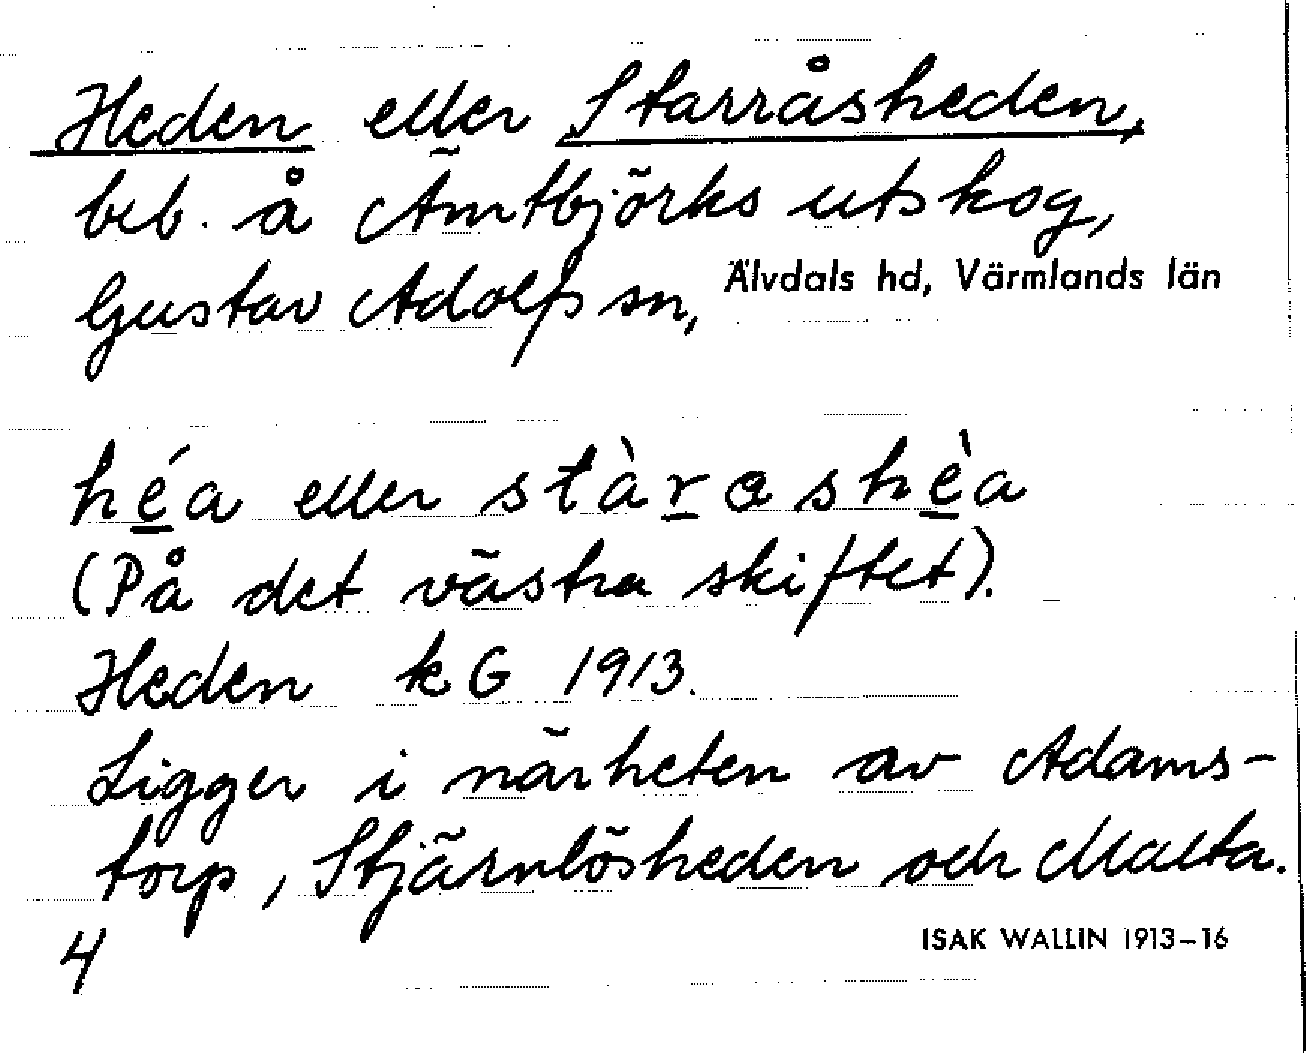 Heden eller Starråsheden,
beb. å Ämtbjörks utskog,
Gustav Adolfs sn, Älvdals hd, Värmlands län
héa eller stàrɑshèa
(På det västra skiftet).
Heden kG 1913.
Ligger i närheten av Adams-
torp, Stjärnlösheden och Malta.
4 ISAK WALLIN 1913–16